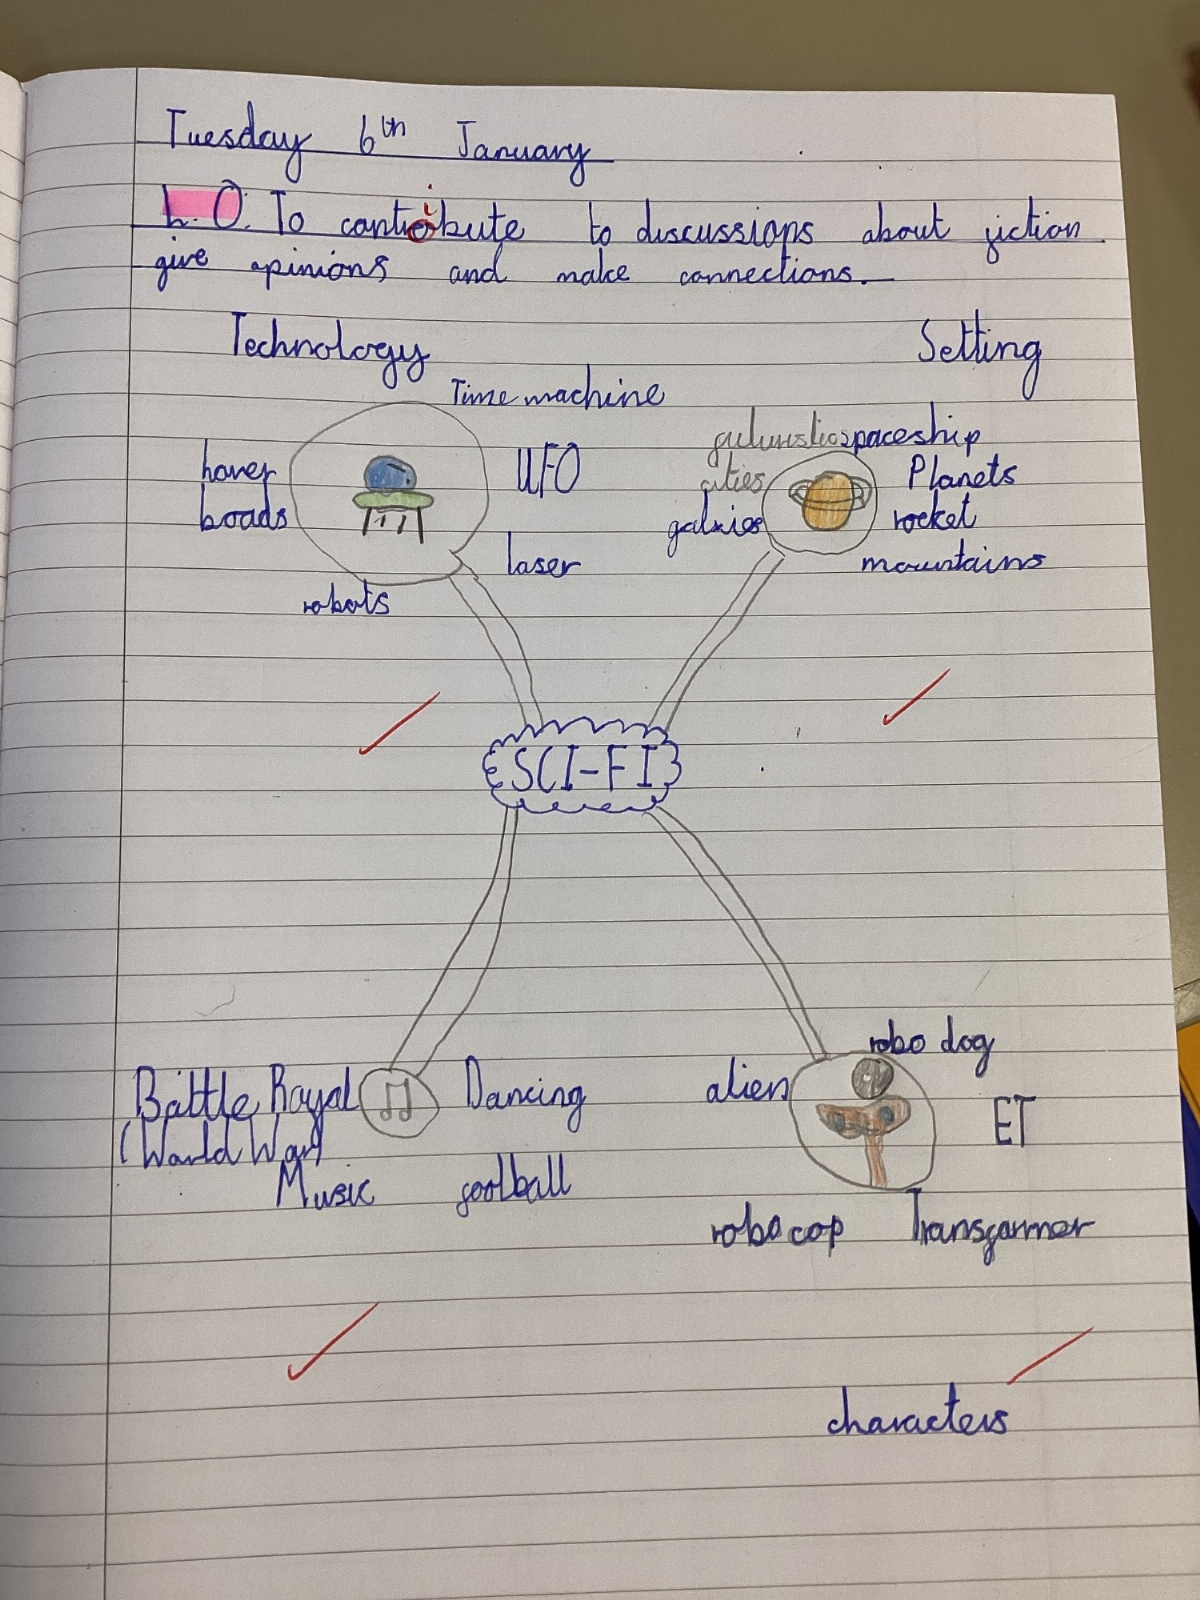 Tuesday 6th January
L.O. To contribute to discussions about fiction
give opinions and make connections.
Technology
Setting
Time machine
hover
boads
UFO
laser
robots
futuristic
cities
galaxies
spaceship
Planets
rocket
mountains
SCI-FI
Battle Royal
(World War)
Music
Dancing
football
alien
robo dog
ET
robo cop
Transformer
characters